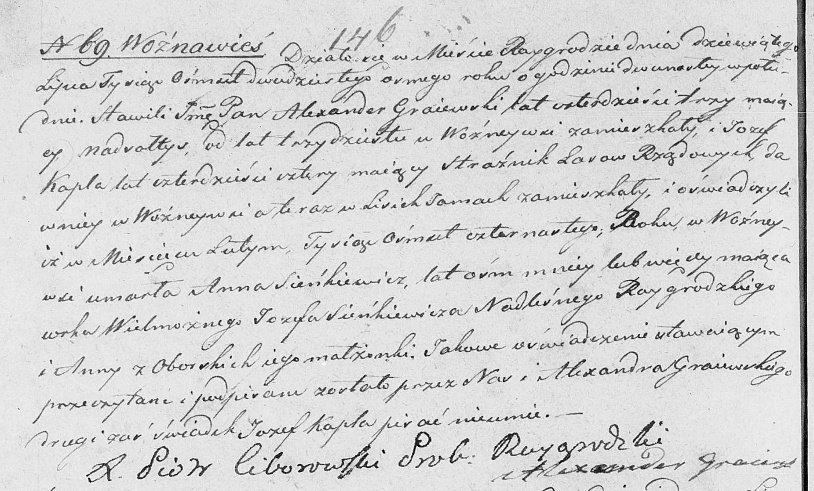 146
N 69. Woźnawieś Działo się w Mieście Raygrodzie dnia dziewiątego
Lipca Tysiąc Ośmset dwudziestego osmego roku o godzinie dwunastey w połu-
dnie. Stawili Pan Alexander Graiewski lat czterdzieści trzy maią-
cy nadsołtys, od lat trzydziestu w Woźneywsi zamieszkały, i Jozef
Kapla lat czterdzieści cztery maiący Strażnik Lasow Rządowych, da
wniey w Woźneywsi a teraz w Lisich Jamach zamieszkały, i oświadczyli
iż w Miesiącu Lutym, Tysiąc Ośmset czternastego, Roku, w Woźney-
wsi umarła Anna Sieńkiewicz, lat ośm mniey lub więcey maiąca
wrka Wielmożnego Jozefa Sieńkiewicza Nadleśnego Raygrodzkiego
i Anny z Oborskich iego małżonki. Jakowe oświadczenie stawaiącym
przeczytane i podpisane zostało przez Nas i Alexandra Graiewskiego
drugi zaś świadek Jozef Kapla pisać nieumie. —
X. Piotr Ciborowski Prob. Raygrodzki
Alexander